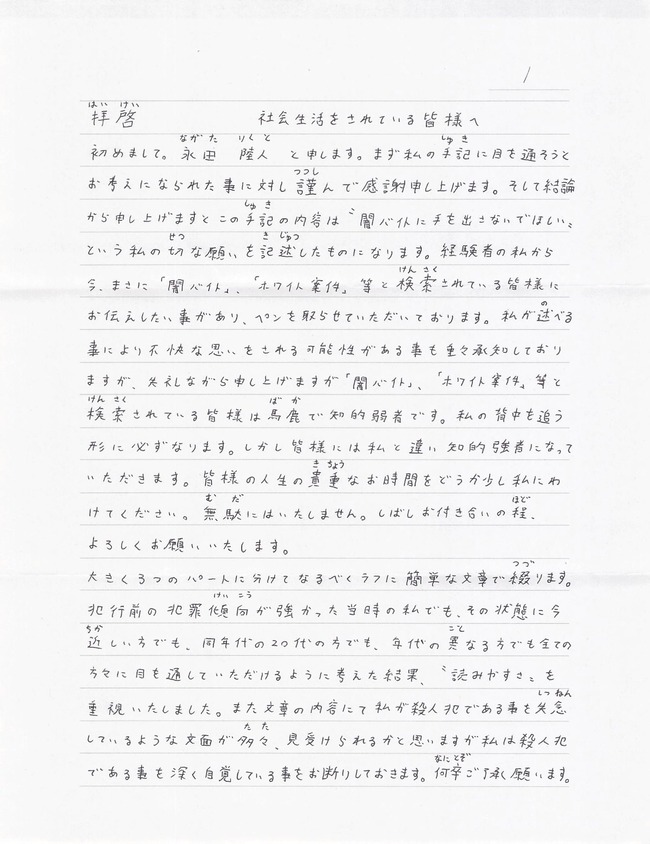 1
拝啓 社会生活をされている皆様へ
初めまして。永田 陸人 と申します。まず私の手記に目を通そうと
お考えになられた事に対し謹んで感謝申し上げます。そして結論
から申し上げますとこの手記の内容は〝闇バイトに手を出さないでほしい〟
という私の切な願いを記述したものになります。経験者の私から
今、まさに「闇バイト」、「ホワイト案件」等と検索されている皆様に
お伝えしたい事があり、ペンを取らせていただいております。私が述べる
事により不快な思いをされる可能性がある事も重々承知しており
ますが、失礼ながら申し上げますが「闇バイト」、「ホワイト案件」等と
検索されている皆様は馬鹿で知的弱者です。私の背中を追う
形に必ずなります。しかし皆様には私と違い知的強者になって
いただきます。皆様の人生の貴重なお時間をどうか少し私にわ
けてください。無駄にはいたしません。しばしお付き合いの程、
よろしくお願いいたします。
大きく3つのパートに分けてなるべくラフに簡単な文章で綴ります。
犯行前の犯罪傾向が強かった当時の私でも、その状態に今
近しい方でも、同年代の20代の方でも、年代の異なる方でも全ての
方々に目を通していただけるように考えた結果、〝読みやすさ〟を
重視いたしました。また文章の内容にて私が殺人犯である事を失念
しているような文面が多々、見受けられるかと思いますが私は殺人犯
である事を深く自覚している事をお断りしておきます。何卒ご了承願います。